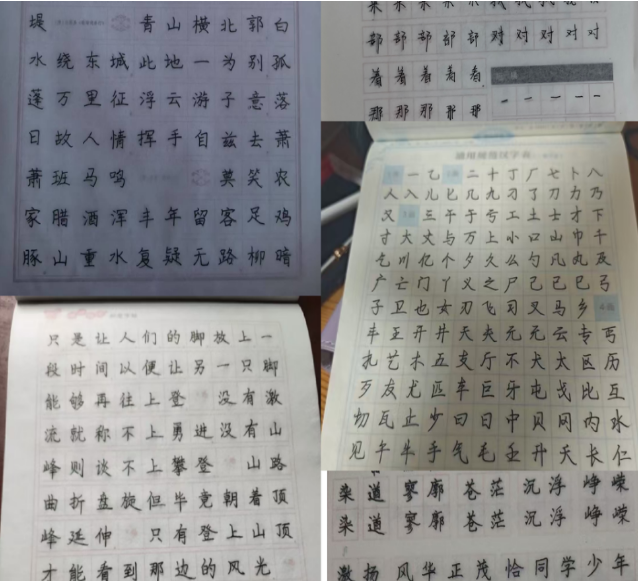 堤 青山横北郭白
水绕东城此地一为别孤
蓬万里征浮云游子意落
日故人情挥手自兹去萧
萧班马鸣 莫笑农
家腊酒浑丰年留客足鸡
豚山重水复疑无路柳暗
部部部部部 对对对对对
着着着着着
那那那那那
一乙 二十丁厂七卜八
人入儿匕几九刁了刀力乃
又 三干于亏工土士才下
寸大丈与万上小口山巾千
乞川亿个夕久么勺凡丸及
广亡门丫义之尸己已巳弓
子卫也女刃飞习叉马乡
丰王开井天夫元无云专丐
扎艺木五支厅不犬太区历
歹友尤匹车巨牙屯戈比互
切瓦止少曰日中贝冈内水
见午牛手气毛壬升夭长仁
只是让人们的脚放上一
段时间以便让另一只脚
能够再往上登 没有激
流就称不上勇进没有山
峰则谈不上攀登 山路
曲折盘旋但毕竟朝着顶
峰延伸 只有登上山顶
才能看到那边的风光
染道 寥廓 苍茫 沉浮 峥嵘
染道 寥廓 苍茫 沉浮 峥嵘
激扬 风华正茂恰同学少年